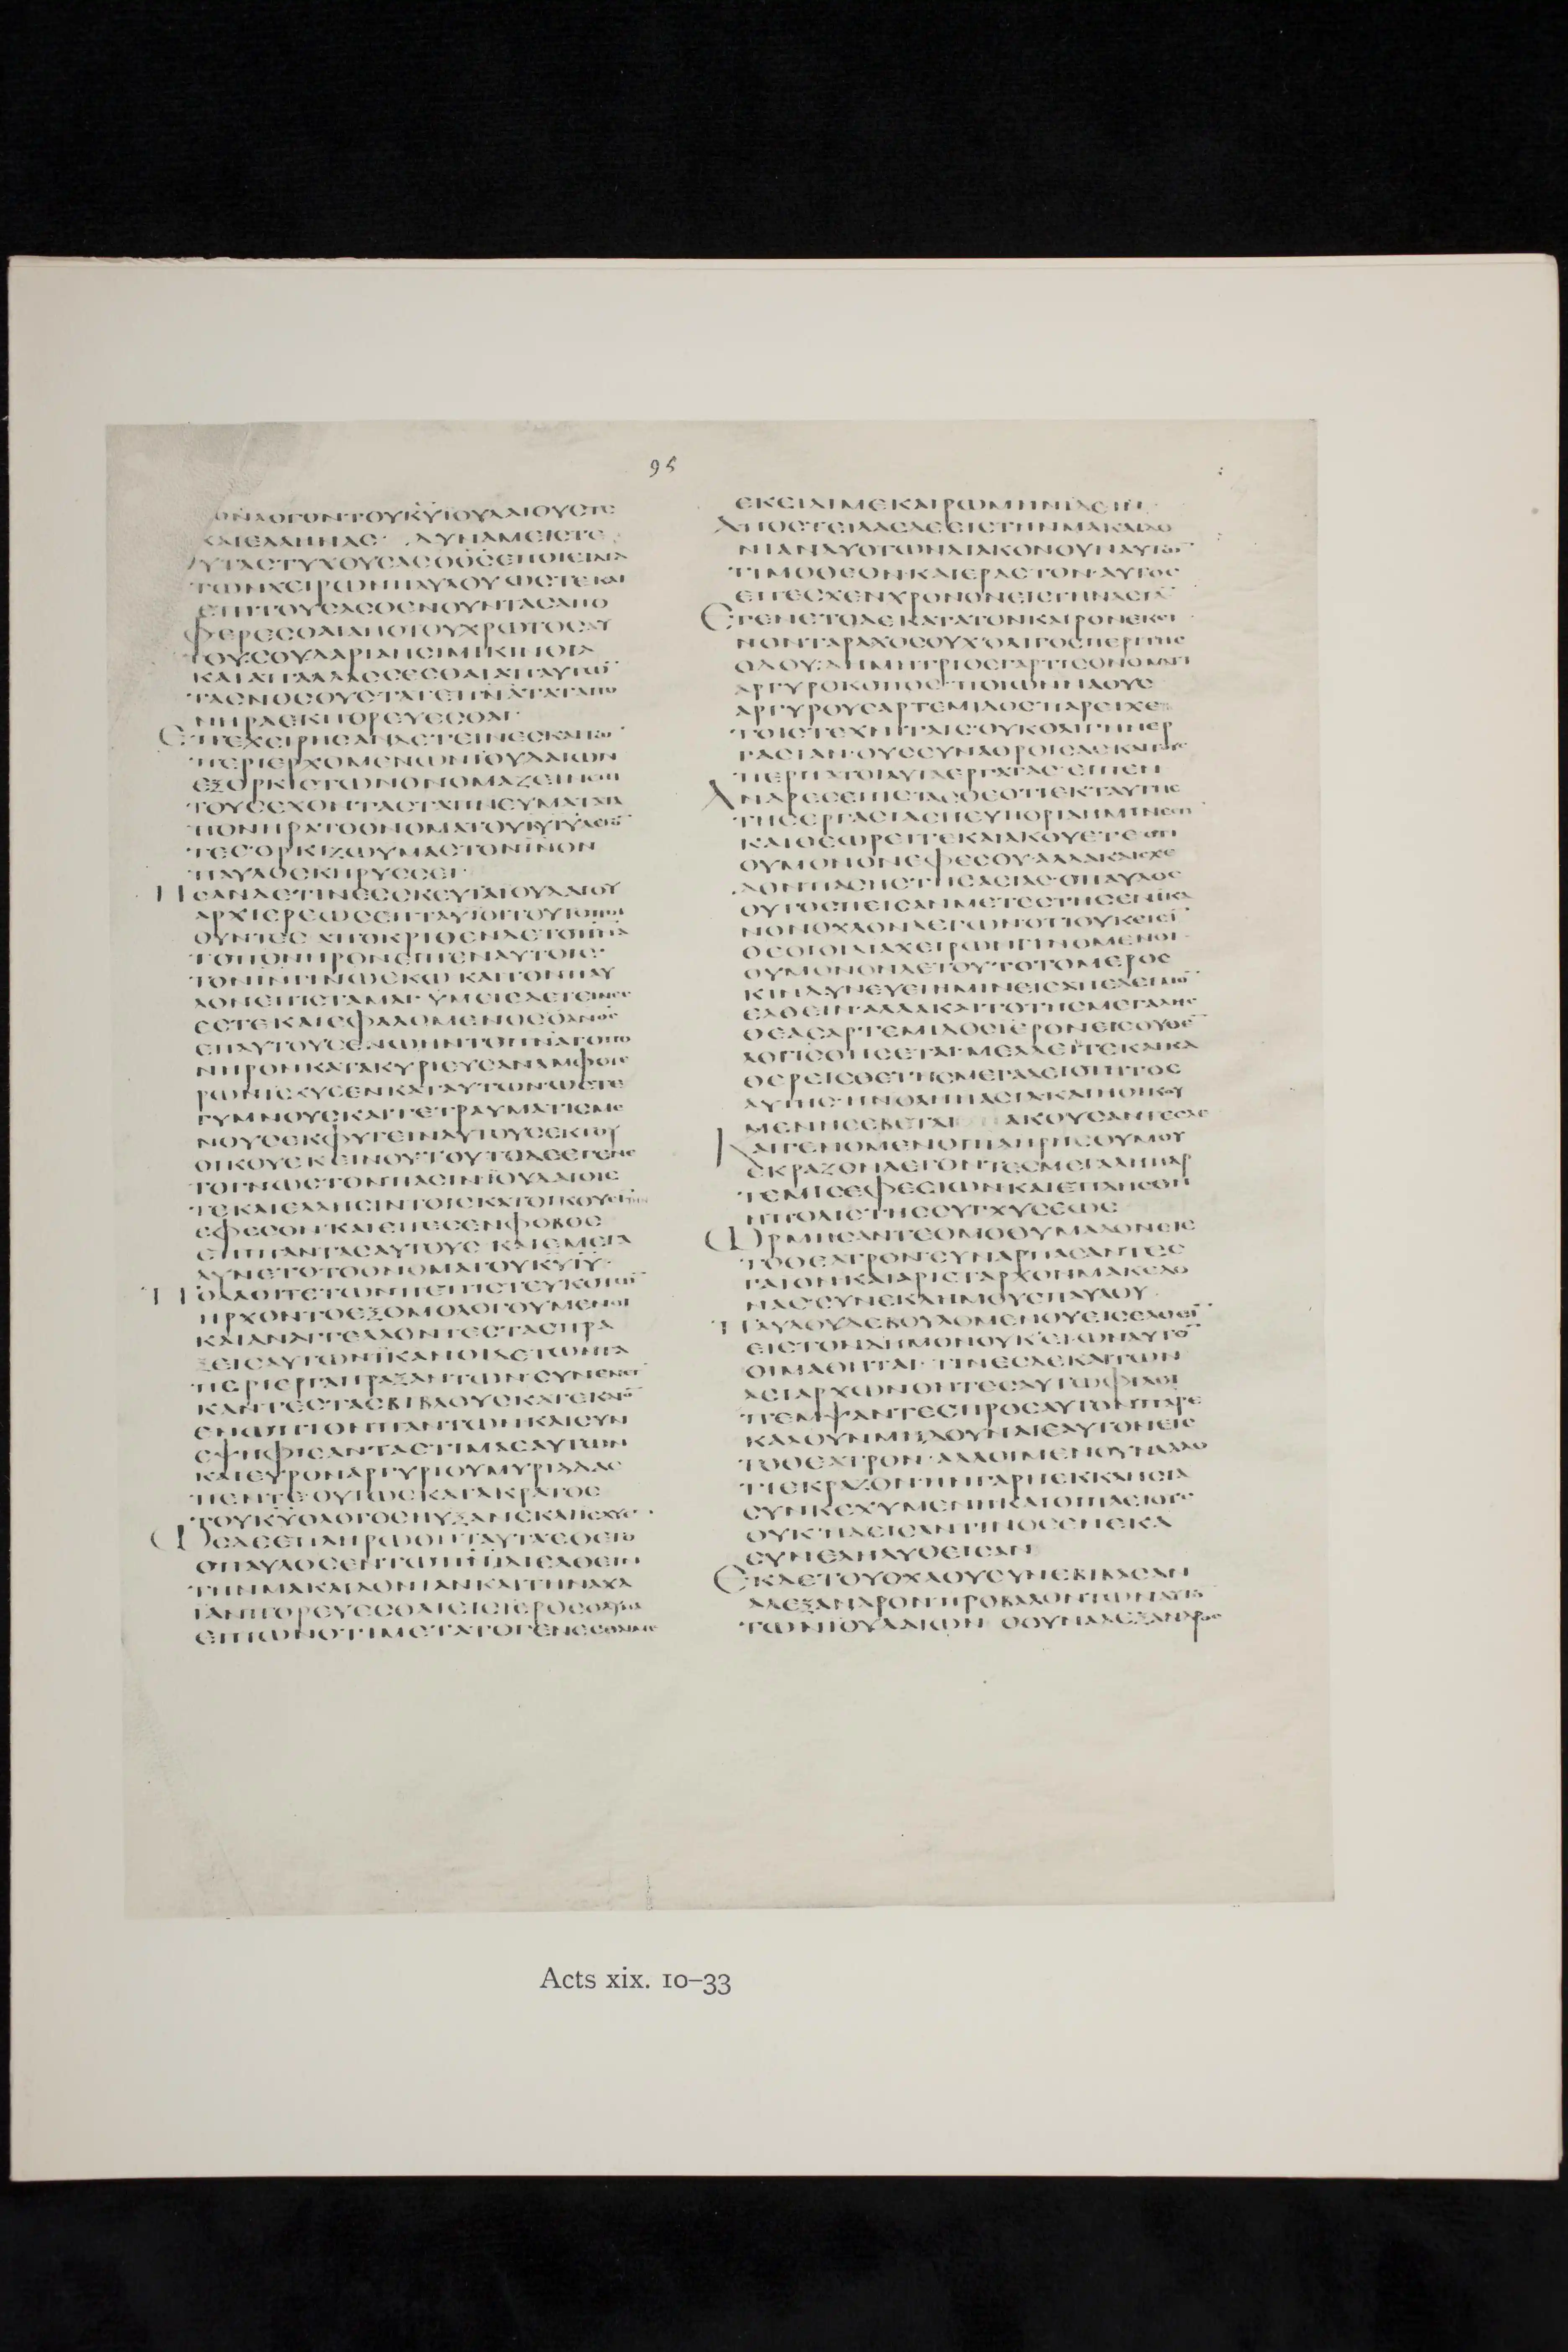 95
ΟΝΛΟΓΟΝΤΟΥΚΥΙΟΥΔΑΙΟΥΣΤΕ
ΚΑΙΕΛΛΗΝΑΣ· ΔΥΝΑΜΕΙΣΤΕ
ΤΩΝΧΕΙΡΩΝΠΑΥΛΟΥ ΩΣΤΕΚΑΙ
ΕΠΙΤΟΥΣΑΣΘΕΝΟΥΝΤΑΣΑΠΟ
ΦΕΡΕΣΘΑΙΑΠΟΤΟΥΧΡΩΤΟΣΑΥ
ΤΟΥΣΟΥΔΑΡΙΑΗΣΙΜΙΚΙΝΘΙΑ
ΚΑΙΑΠΑΛΛΑΣΣΕΣΘΑΙΑΠΑΥΤΩ̅
ΤΑΣΝΟΣΟΥΣΤΑΤΕΠΝΑΤΑΤΑΠΟ
ΝΗΡΑΕΚΠΟΡΕΥΕΣΘΑΙ·
ΕΠΕΧΕΙΡΗΣΑΝΔΕΤΙΝΕΣΚΑΙΤΩ̅
ΠΕΡΙΕΡΧΟΜΕΝΩΝΙΟΥΔΑΙΩΝ
ΕΞΟΡΚΙΣΤΩΝΟΝΟΜΑΖΕΙΝΕΠΙ
ΤΟΥΣΕΧΟΝΤΑΣΤΑΠΝΕΥΜΑΤΑΤΑ
ΠΟΝΗΡΑΤΟΟΝΟΜΑΤΟΥΚΥΙΥΛΕΓΟ̅
ΤΕΣ·ΟΡΚΙΖΩΥΜΑΣΤΟΝΙΝΟΝ
ΠΑΥΛΟΣΚΗΡΥΣΣΕΙ·
ΗΣΑΝΔΕΤΙΝΕΣΣΚΕΥΙΑΙΟΥΔΑΙΟΥ
ΑΡΧΙΕΡΕΩΣΕΠΤΑΥΙΟΙΤΟΥΤΟΠΟΙ
ΤΟΠΟΝΗΡΟΝΕΙΠΕΝΑΥΤΟΙΣ·
ΤΟΝΙΝΓΙΝΩΣΚΩ ΚΑΙΤΟΝΠΑΥ
ΛΟΝΕΠΙΣΤΑΜΑΙ· ΥΜΕΙΣΔΕΤΙΝΕΣ
ΕΣΤΕΚΑΙΕΦΑΛΟΜΕΝΟΣΟΑΝΟΣ
ΝΗΡΟΝΚΑΤΑΚΥΡΙΕΥΣΑΝΑΜΦΟΤΕ
ΡΩΝΙΣΧΥΣΕΝΚΑΤΑΥΤΩΝ·ΩΣΤΕ
ΓΥΜΝΟΥΣΚΑΙΤΕΤΡΑΥΜΑΤΙΣΜΕ
ΝΟΥΣΕΚΦΥΓΕΙΝΑΥΤΟΥΣΕΚΤΟΥ
ΟΙΚΟΥΕΚΕΙΝΟΥΤΟΥΤΟΔΕΕΓΕΝΕ
ΤΟΓΝΩΣΤΟΝΠΑΣΙΝΙΟΥΔΑΙΟΙΣ
ΤΕΚΑΙΕΛΛΗΣΙΝΤΟΙΣΚΑΤΟΙΚΟΥΣΙΝ
ΕΦΕΣΟΝ·ΚΑΙΕΠΕΣΕΝΦΟΒΟΣ
ΕΠΙΠΑΝΤΑΣΑΥΤΟΥΣ ΚΑΙΕΜΕΓΑ
ΛΥΝΕΤΟΤΟΟΝΟΜΑΤΟΥΚΥΙΥ·
ΠΟΛΛΟΙΤΕΤΩΝΠΕΠΙΣΤΕΥΚΟΤΩ̅
ΗΡΧΟΝΤΟΕΞΟΜΟΛΟΓΟΥΜΕΝΟΙ
ΚΑΙΑΝΑΓΓΕΛΛΟΝΤΕΣΤΑΣΠΡΑ
ΞΕΙΣΑΥΤΩΝΙΚΑΝΟΙΔΕΤΩΝΤΑ
ΠΕΡΙΕΡΓΑΠΡΑΞΑΝΤΩΝ·ΣΥΝΕΝΕΓ
ΚΑΝΤΕΣΤΑΣΒΙΒΛΟΥΣΚΑΤΕΚΑΙΟ̅
ΕΝΩΠΙΟΝΠΑΝΤΩΝΚΑΙΣΥΝ
ΕΨΗΦΙΣΑΝΤΑΣΤΙΜΑΣΑΥΤΩΝ
ΚΑΙΕΥΡΟΝΑΡΓΥΡΙΟΥΜΥΡΙΑΔΑΣ
ΠΕΝΤΕ·ΟΥΤΩΣΚΑΤΑΚΡΑΤΟΣ
ΤΟΥΚΥΟΛΟΓΟΣΗΥΞΑΝΕΚΑΙΙΣΧΥΕ·
ΩΣΔΕΕΠΛΗΡΩΘΗΤΑΥΤΑΕΘΕΤΟ
ΟΠΑΥΛΟΣΕΝΤΩΠΝΙΔΙΕΛΘΕΙΝ
ΤΗΝΜΑΚΑΙΔΟΝΙΑΝΚΑΙΤΗΝΑΧΑ
ΙΑΝΠΟΡΕΥΕΣΘΑΙΕΙΣΙΕΡΟΣΟΛΥΜΑ
ΕΙΠΩΝΟΤΙΜΕΤΑΤΟΓΕΝΕΣΘΑΙΜΕ
ΕΚΕΙΔΙΜΕΚΑΙΡΩΜΗΝΙΔΕΙΝ·
ΑΠΟΣΤΕΙΛΑΣΔΕΕΙΣΤΗΝΜΑΚΑΙΔΟ
ΝΙΑΝΔΥΟΤΩΝΔΙΑΚΟΝΟΥΝΑΥΤΩ̅
ΤΙΜΟΘΕΟΝ·ΚΑΙΕΡΑΣΤΟΝ·ΑΥΤΟΣ
ΕΠΕΣΧΕΝΧΡΟΝΟΝΕΙΣΤΗΝΑΣΙΑ̅
ΕΓΕΝΕΤΟΔΕΚΑΤΑΤΟΝΚΑΙΡΟΝΕΚΕΙ
ΝΟΝΤΑΡΑΧΟΣΟΥΧΟΛΙΓΟΣΠΕΡΙΤΗΣ
ΟΔΟΥ·ΔΗΜΗΤΡΙΟΣΓΑΡΤΙΣΟΝΟΜΑΤΙ
ΑΡΓΥΡΟΚΟΠΟΣ·ΠΟΙΩΝΝΑΟΥΣ
ΑΡΓΥΡΟΥΣΑΡΤΕΜΙΔΟΣΠΑΡΕΙΧΕ
ΤΟΙΣΤΕΧΝΙΤΑΙΣ·ΟΥΚΟΛΙΓΗΝΕΡ
ΓΑΣΙΑΝ·ΟΥΣΣΥΝΑΘΡΟΙΣΑΣΚΑΙΤΟΥΣ
ΠΕΡΙΤΑΤΟΙΑΥΤΑΕΡΓΑΤΑΣ·ΕΙΠΕΝ
ΑΝΔΡΕΣΕΠΙΣΤΑΣΘΕΟΤΙΕΚΤΑΥΤΗΣ
ΤΗΣΕΡΓΑΣΙΑΣΗΕΥΠΟΡΙΑΗΜΙΝΕΣΤΙ
ΚΑΙΘΕΩΡΕΙΤΕΚΑΙΑΚΟΥΕΤΕΟΤΙ
ΟΥΜΟΝΟΝΕΦΕΣΟΥ·ΑΛΛΑΚΑΙΣΧΕ
ΔΟΝΠΑΣΗΣΤΗΣΑΣΙΑΣ·ΟΠΑΥΛΟΣ
ΟΥΤΟΣΠΕΙΣΑΝΜΕΤΕΣΤΗΣΕΝΙΚΑ
ΝΟΝΟΧΛΟΝΛΕΓΩΝΟΤΙΟΥΚΕΙΣΙ
ΘΕΟΙΟΙΔΙΑΧΕΙΡΩΝΓΙΝΟΜΕΝΟΙ·
ΟΥΜΟΝΟΝΔΕΤΟΥΤΟΤΟΜΕΡΟΣ
ΚΙΝΔΥΝΕΥΕΙΗΜΙΝΕΙΣΑΠΕΛΕΓΜΟ̅
ΕΛΘΕΙΝ·ΑΛΛΑΚΑΙΤΟΤΗΣΜΕΓΑΛΗΣ
ΘΕΑΣΑΡΤΕΜΙΔΟΣΙΕΡΟΝΕΙΣΟΥΘΕ̅
ΛΟΓΙΣΘΗΣΕΤΑΙ·ΜΕΛΛΕΙΤΕΚΑΙΚΑ
ΘΕΡΕΙΣΘΕΤΗΣΜΕΓΑΛΕΙΟΤΗΤΟΣ
ΑΥΤΗΣ·ΗΝΟΛΗΗΑΣΙΑΚΑΙΗΟΙΚΟΥ
ΜΕΝΗΣΕΒΕΤΑΙ ΑΚΟΥΣΑΝΤΕΣΔΕ
ΚΑΙΓΕΝΟΜΕΝΟΙΠΛΗΡΗΣΘΥΜΟΥ
ΕΚΡΑΖΟΝΛΕΓΟΝΤΕΣΜΕΓΑΛΗΗΑΡ
ΤΕΜΙΣΕΦΕΣΙΩΝΚΑΙΕΠΛΗΣΘΗ
ΗΠΟΛΙΣΤΗΣΣΥΓΧΥΣΕΩΣ
ΩΡΜΗΣΑΝΤΕΟΜΟΘΥΜΑΔΟΝΕΙΣ
ΤΟΘΕΑΤΡΟΝ·ΣΥΝΑΡΠΑΣΑΝΤΕΣ
ΓΑΙΟΝΚΑΙΑΡΙΣΤΑΡΧΟΝΜΑΚΕΔΟ
ΝΑΣ·ΣΥΝΕΚΔΗΜΟΥΣΠΑΥΛΟΥ·
ΠΑΥΛΟΥΔΕΒΟΥΛΟΜΕΝΟΥΕΙΣΕΛΘΕΙ̅
ΕΙΣΤΟΝΔΗΜΟΝΟΥΚΕΙΩΝΑΥΤΟ̅
ΟΙΜΑΘΗΤΑΙ· ΤΙΝΕΣΔΕΚΑΙΤΩΝ
ΑΣΙΑΡΧΩΝΟΝΤΕΣΑΥΤΩΦΙΛΟΙ
ΠΕΜΨΑΝΤΕΣΠΡΟΣΑΥΤΟΝΠΑΡΕ
ΚΑΛΟΥΝΜΗΔΟΥΝΑΙΕΑΥΤΟΝΕΙΣ
ΤΟΘΕΑΤΡΟΝ·ΑΛΛΟΙΜΕΝΟΥΝΑΛΛΟ
ΤΙΕΚΡΑΖΟΝ·ΗΝΓΑΡΗΕΚΚΛΗΣΙΑ
ΣΥΝΚΕΧΥΜΕΝΗΚΑΙΟΙΠΛΕΙΟΥΣ
ΟΥΚΗΔΕΙΣΑΝΤΙΝΟΣΕΝΕΚΑ
ΣΥΝΕΛΗΛΥΘΕΙΣΑΝ
ΕΚΔΕΤΟΥΟΧΛΟΥΣΥΝΕΒΙΒΑΣΑΝ
ΑΛΕΞΑΝΔΡΟΝΠΡΟΒΑΛΟΝΤΩΝΑΥΤΟ̅
ΤΩΝΙΟΥΔΑΙΩΝ· ΟΟΥΝΑΛΕΞΑΝΔΡΟΣ
Acts xix. 10–33